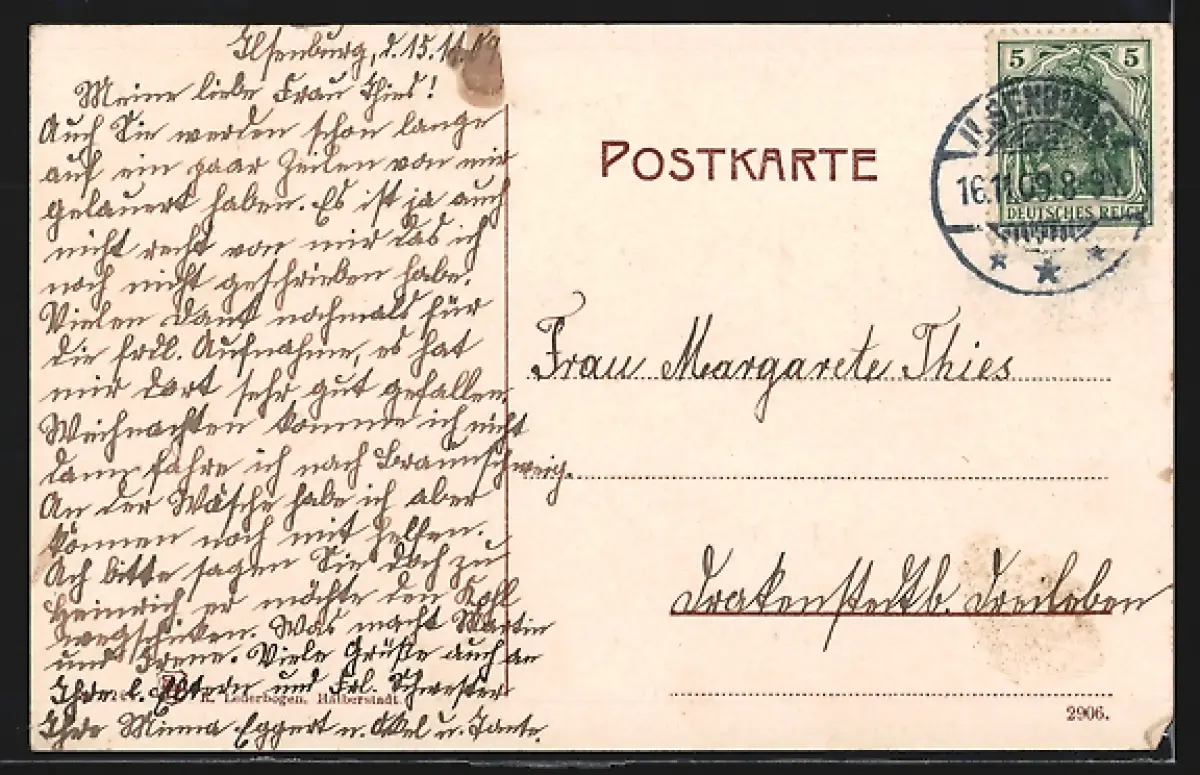 Ilsenburg, d. 15.11.09
Meine liebe Frau Thies!
Auch Sie werden schon lange
auf ein paar Zeilen von mir
gelauert haben. Es ist ja auch
nicht recht von mir das ich
noch nicht geschrieben habe.
Vielen Dank nochmals für
die frdl. Aufnahme, es hat
mir dort sehr gut gefallen.
Weihnachten komme ich nicht
dann fahre ich nach Braunschweig.
An der Wäsche habe ich aber
können noch mit helfen.
Ach bitte sagen Sie doch zu
Heinrich er möchte den Kohl
wegschicken. Was macht Martin
und Irene. Viele Grüße auch an
Ihre l. Eltern und Frl. Schwester
Ihre Minna Eggert u. Onkel u. Tante.
R. Lederbogen, Halberstadt.
POSTKARTE
5 5
DEUTSCHES REICH
ILSENBURG
16.11.09.8-9V
Frau Margarete Thies
Drakenstedt b. Dreileben
2906.